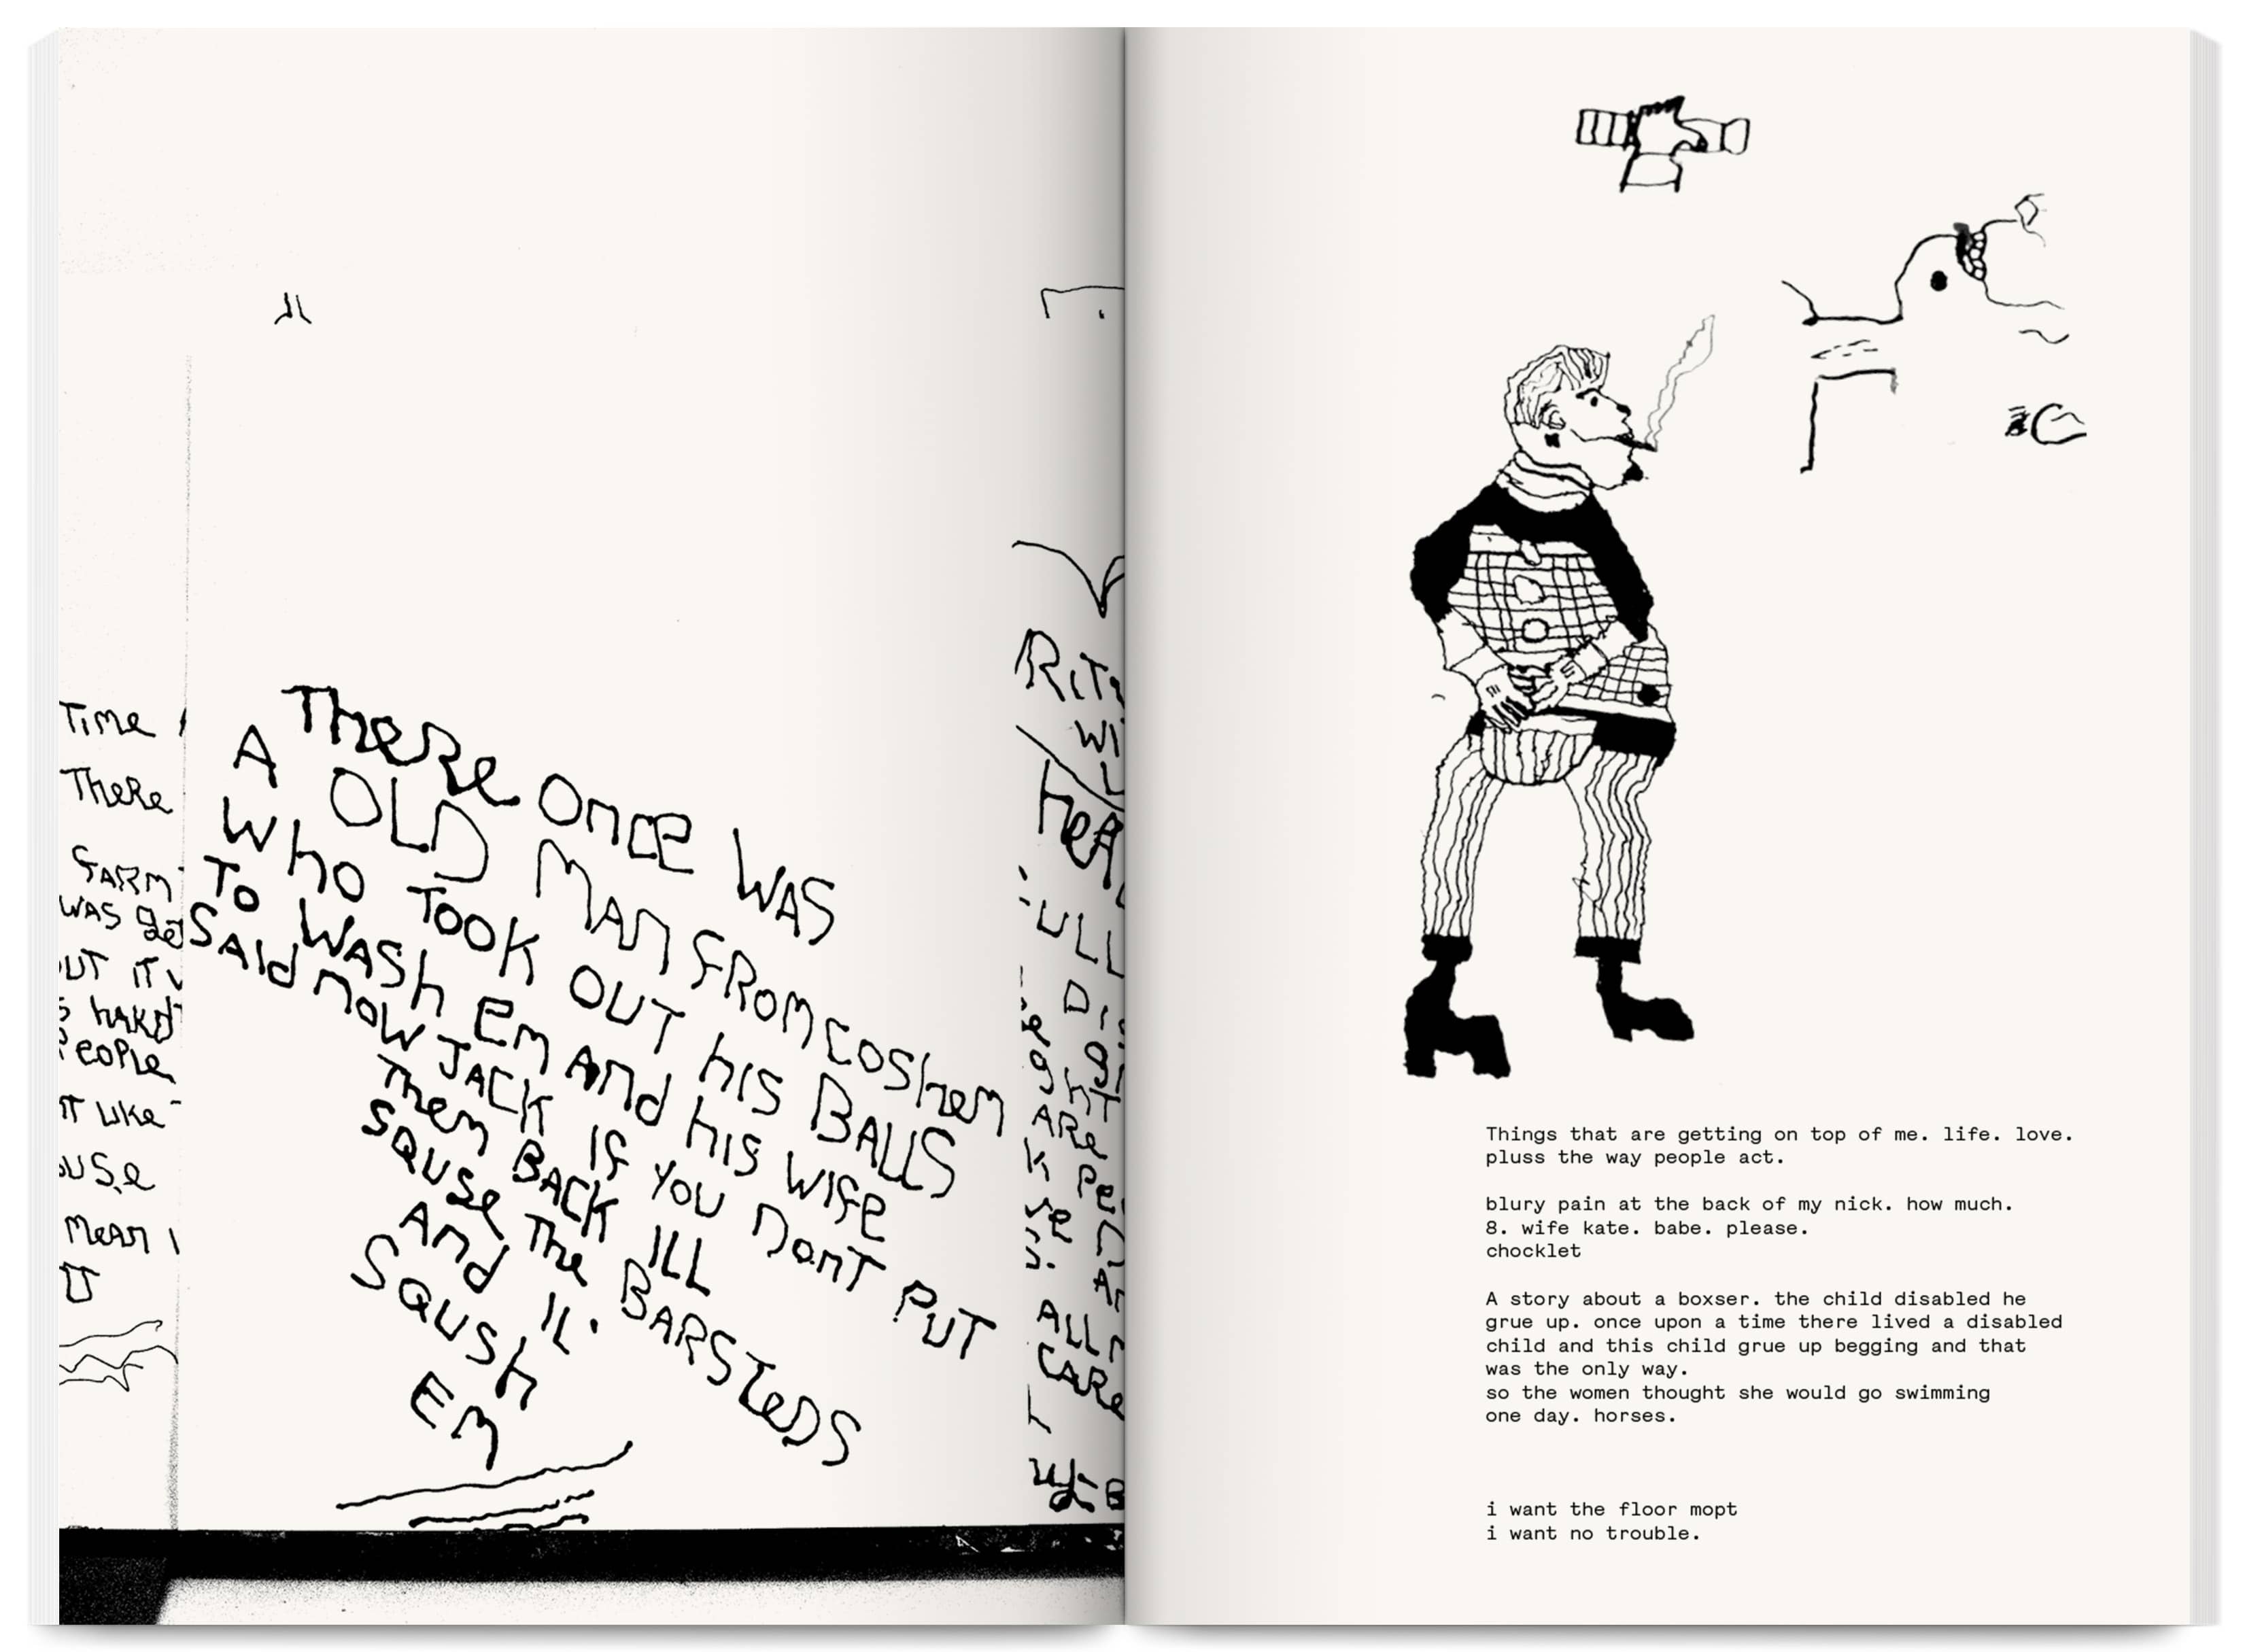 Time
TheRe
SARM
WAS
UT IT
hARD
PeOPle
IT LIKe
USe
MeAn
U
TheRe Once WAS
A OLD MAn FROM COShem
Who TOOK OUT hIS BALLS
To WASh em And hIS WIFe
SAId nOW JACK IF YOU DonT PUT
Them BACK ILL
SQUSe The BARSTeDS
And IL'
SQUSh
EM
RIT
WI
HeA
ULL
ARe
Pe
ALL
CARe
Things that are getting on top of me. life. love.
pluss the way people act.
blury pain at the back of my nick. how much.
8. wife kate. babe. please.
chocklet
A story about a boxser. the child disabled he
grue up. once upon a time there lived a disabled
child and this child grue up begging and that
was the only way.
so the women thought she would go swimming
one day. horses.
i want the floor mopt
i want no trouble.